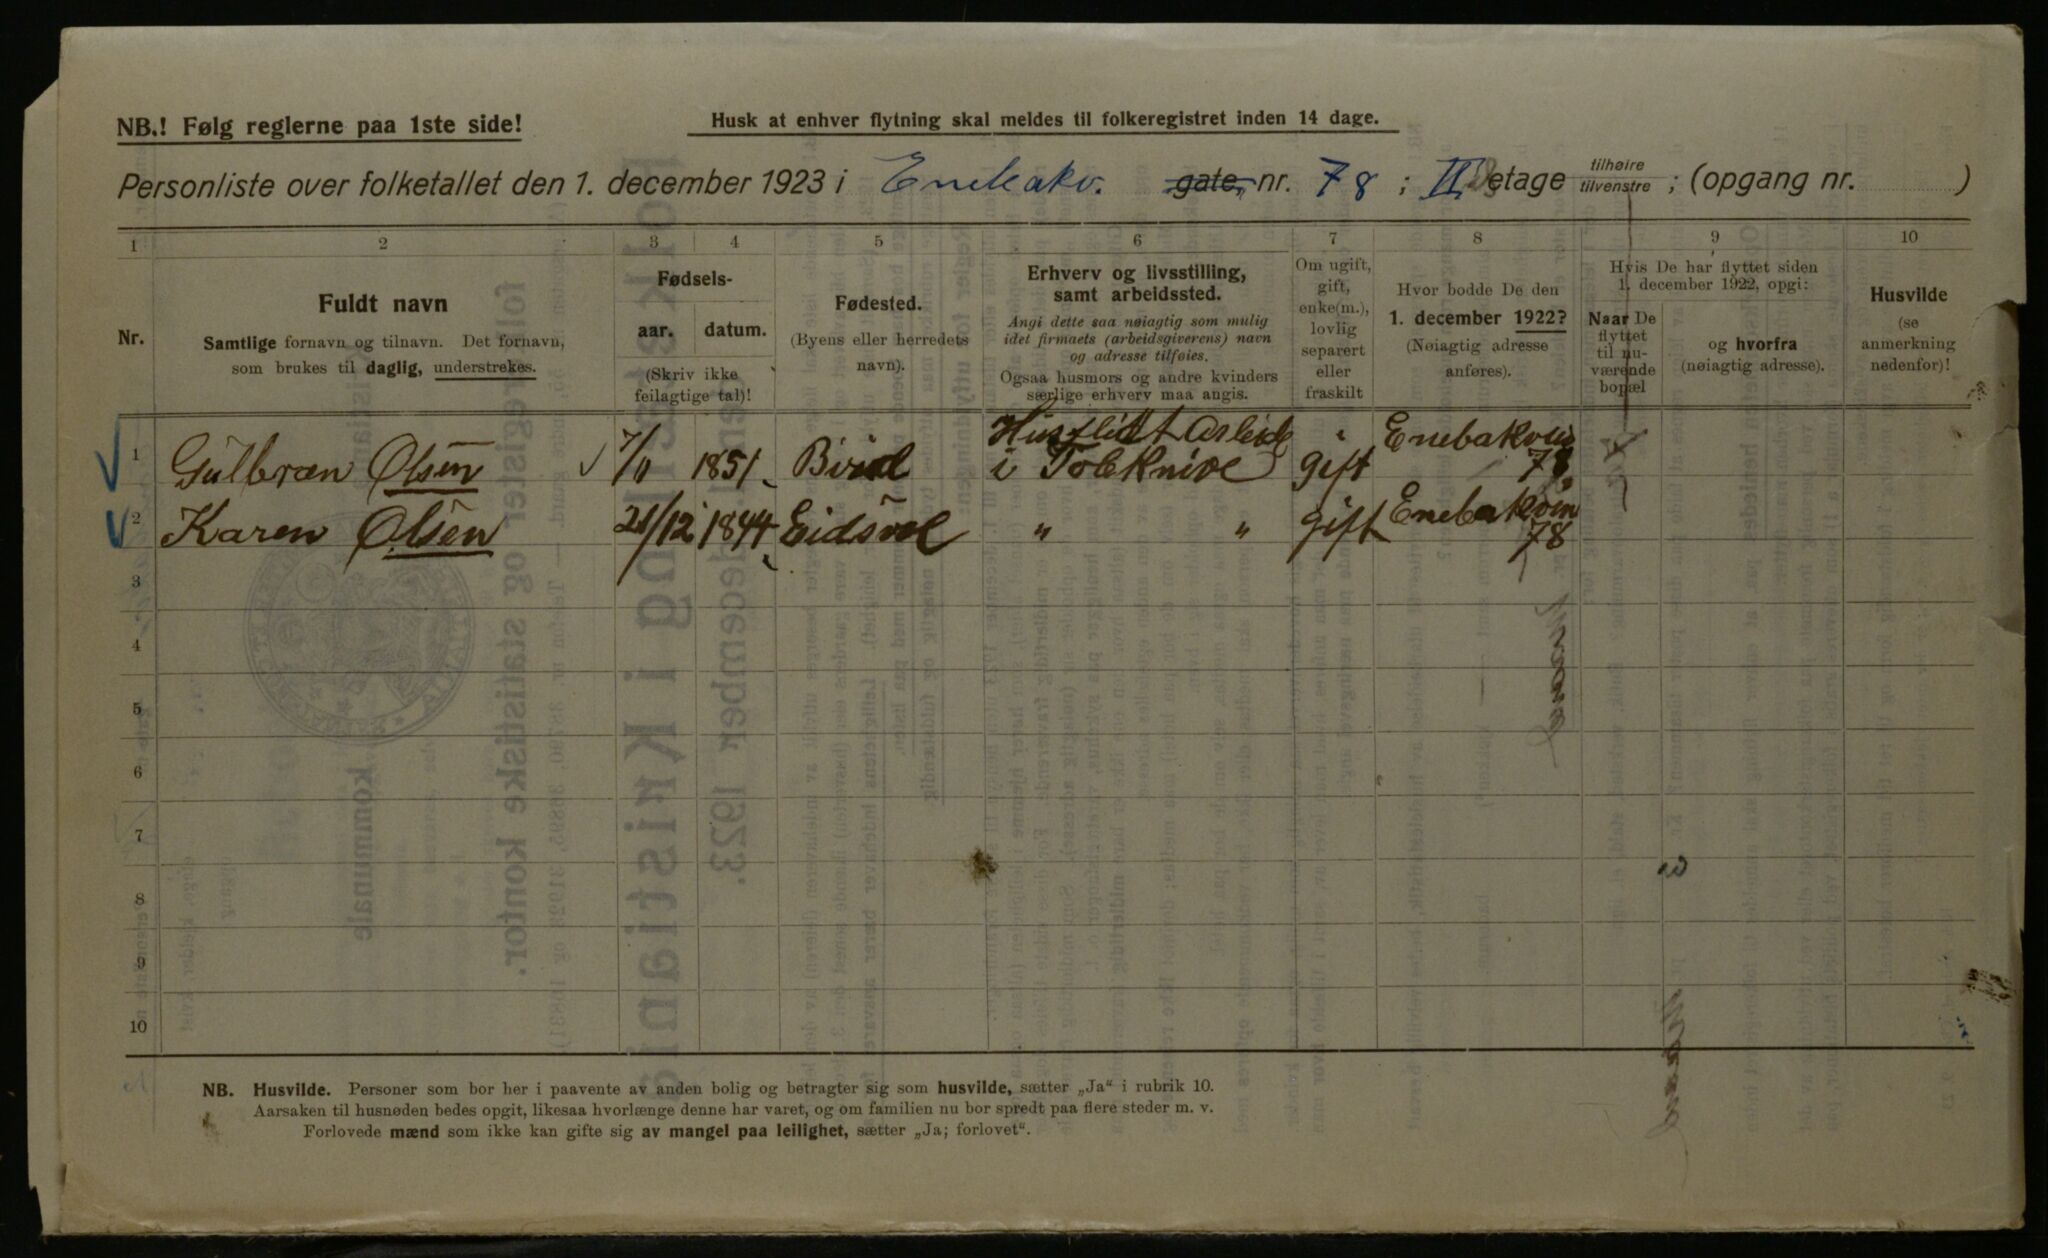 NB.! Følg reglerne paa 1ste side!
Husk at enhver flytning skal meldes til folkeregistret inden 14 dage.
Personliste over folketallet den 1. december 1923 i Enebakv. gate, nr. 78 ; II etage tilhøire tilvenstre ; (opgang nr. )
1 2 3 4 5 6 7 8 9 10
Nr.
Fuldt navn
Samtlige fornavn og tilnavn. Det fornavn,
som brukes til daglig, understrekes.
Fødsels-
aar. datum.
(Skriv ikke
feilagtige tal)!
Fødested.
(Byens eller herredets
navn).
Erhverv og livsstilling,
samt arbeidssted.
Angi dette saa nøiagtig som mulig
idet firmaets (arbeidsgiverens) navn
og adresse tilføies.
Ogsaa husmors og andre kvinders
særlige erhverv maa angis.
Om ugift,
gift,
enke(m.),
lovlig
separert
eller
fraskilt
Hvor bodde De den
1. december 1922?
(Nøiagtig adresse
anføres).
Hvis De har flyttet siden
1. december 1922, opgi:
Naar De
flyttet
til nu-
værende
bopæl
og hvorfra
(nøiagtig adresse).
Husvilde
(se
anmerkning
nedenfor)!
1 Gulbran Olsen 7/11 1851 Birid Husflidt Arbeide gift Enebakvein
i Toleknive 78
2 Karen Olsen 21/12 1844 Eidsvol " " gift Enebakvein
78
3
4
5
6
7
8
9
10
NB. Husvilde. Personer som bor her i paavente av anden bolig og betragter sig som husvilde, sætter „Ja“ i rubrik 10.
Aarsaken til husnøden bedes opgit, likesaa hvorlænge denne har varet, og om familien nu bor spredt paa flere steder m. v.
Forlovede mænd som ikke kan gifte sig av mangel paa leilighet, sætter „Ja; forlovet“.